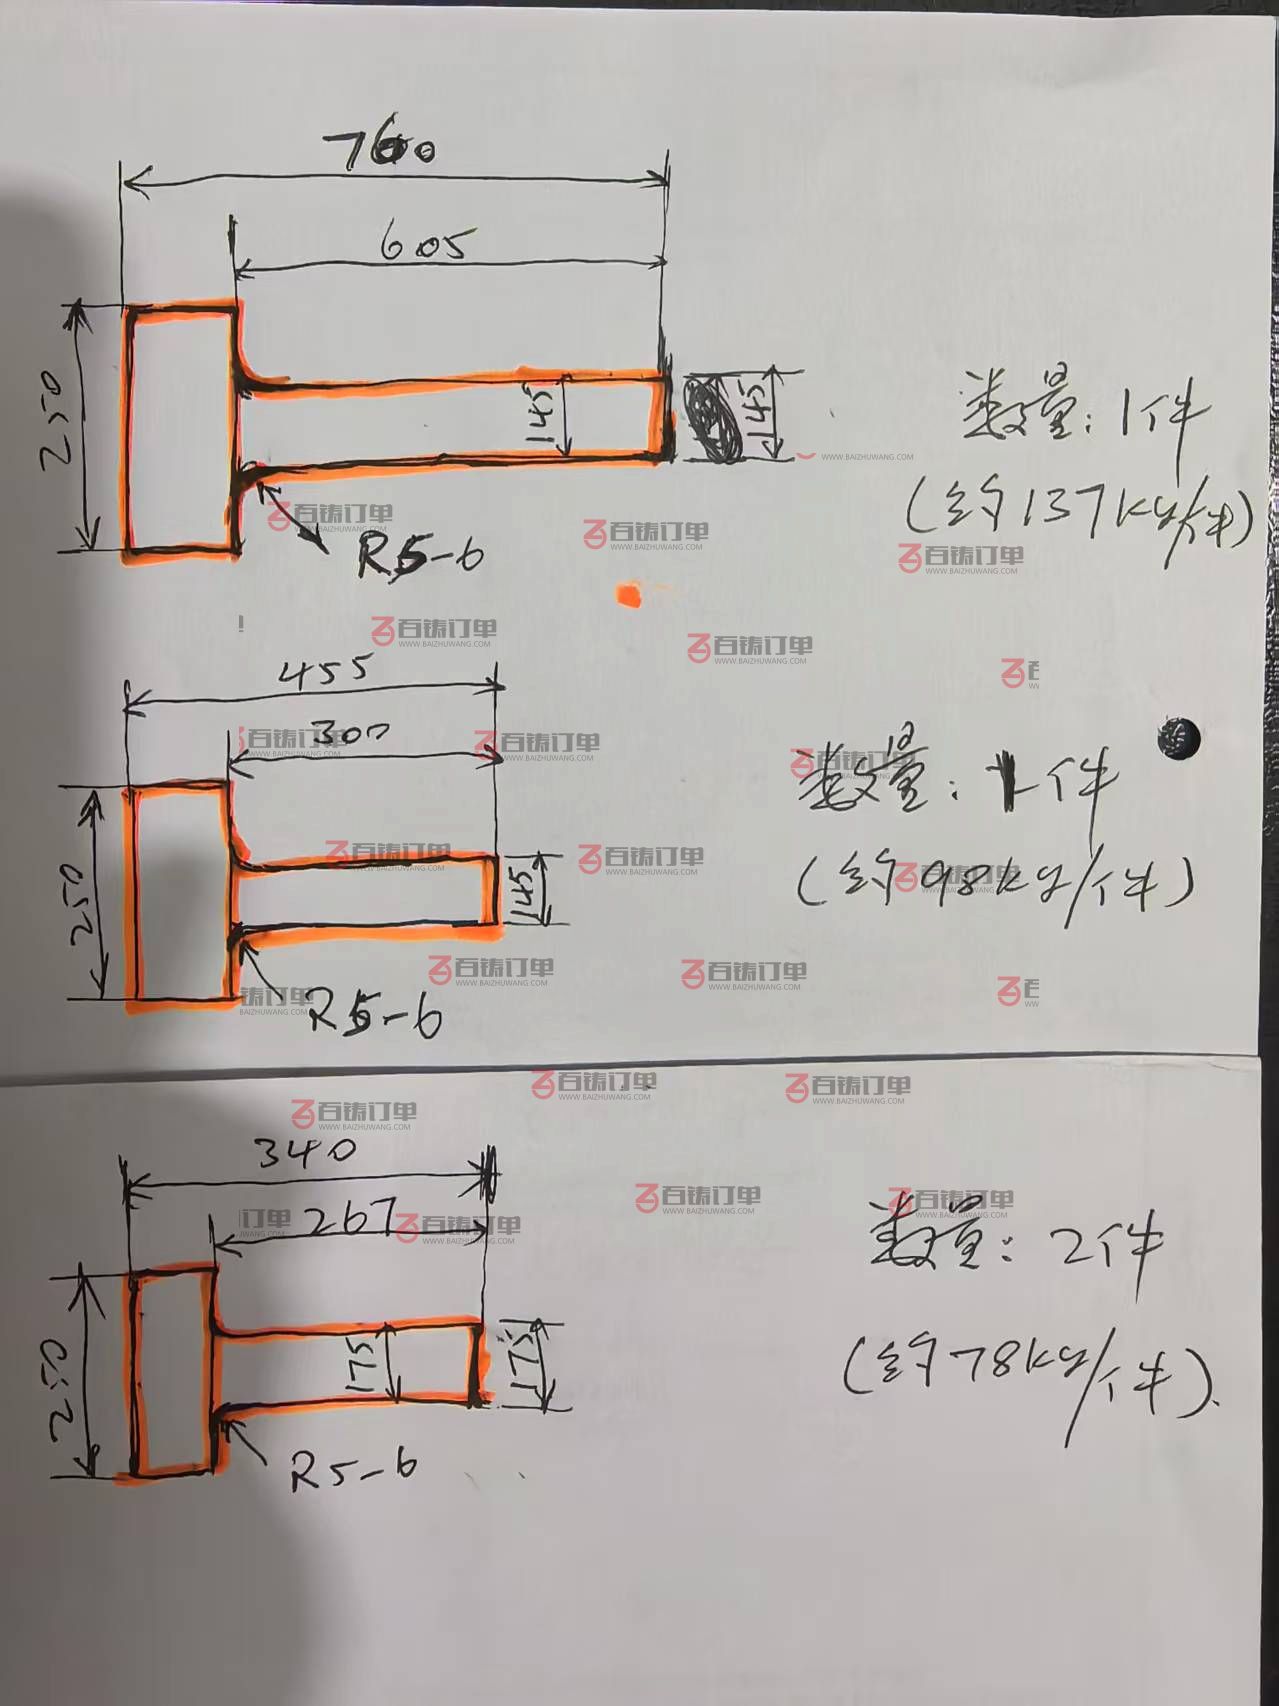 760
605
250
145
145
数量：1件
(约137kg/件)
R5-6
百铸订单
WWW.BAIZHUWANG.COM
455
300
250
145
数量：1件
(约98kg/件)
R5-6
340
267
250
175
175
数量：2件
(约78kg/件).
R5-6